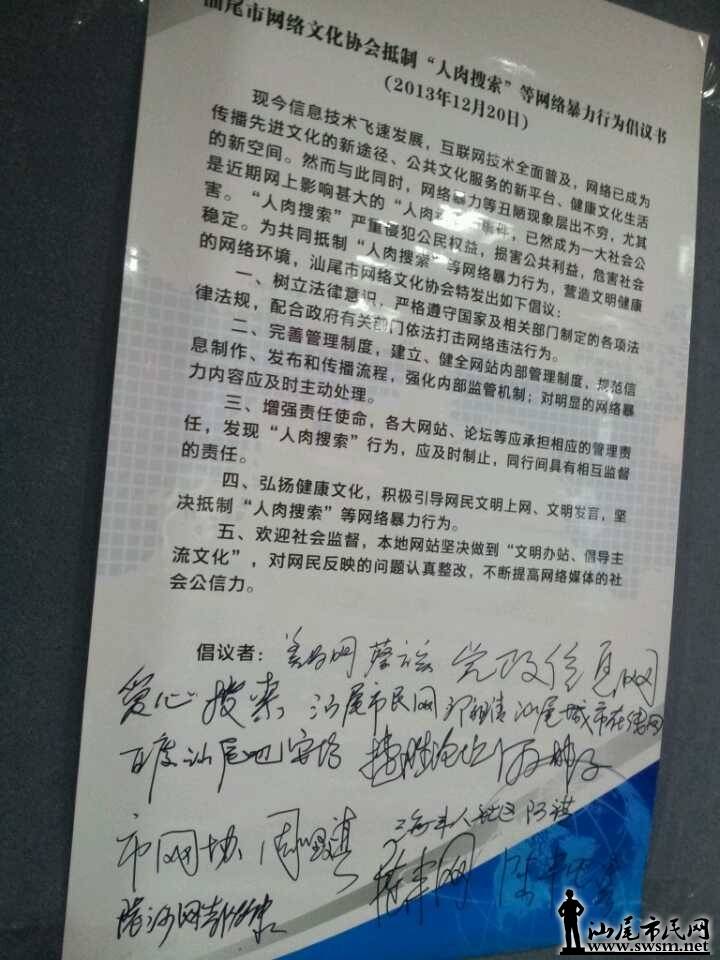 汕尾市网络文化协会抵制“人肉搜索”等网络暴力行为倡议书
（2013年12月20日）
现今信息技术飞速发展，互联网技术全面普及，网络已成为
传播先进文化的新途径、公共文化服务的新平台、健康文化生活
的新空间。然而与此同时，网络暴力等丑陋现象层出不穷，尤其
是近期网上影响甚大的“人肉 件，已然成为一大社会公
害。“人肉搜索”严重侵犯公民权益，损害公共利益，危害社会
稳定。为共同抵制“人肉搜索”等网络暴力行为，营造文明健康
的网络环境，汕尾市网络文化协会特发出如下倡议：
一、树立法律意识，严格遵守国家及相关部门制定的各项法
律法规，配合政府有关部门依法打击网络违法行为。
二、完善管理制度，建立、健全网站内部管理制度，规范信
息制作、发布和传播流程，强化内部监管机制；对明显的网络暴
力内容应及时主动处理。
三、增强责任使命，各大网站、论坛等应承担相应的管理责
任，发现“人肉搜索”行为，应及时制止，同行间具有相互监督
的责任。
四、弘扬健康文化，积极引导网民文明上网、文明发言，坚
决抵制“人肉搜索”等网络暴力行为。
五、欢迎社会监督，本地网站坚决做到“文明办站、倡导主
流文化”，对网民反映的问题认真整改，不断提高网络媒体的社
会公信力。
倡议者： 党政信息网
爱心搜索 汕尾市民网 汕尾城市在线网
百度汕尾吧
市网协 海丰人社区 阿祺
汕尾市民网
www.swsm.net